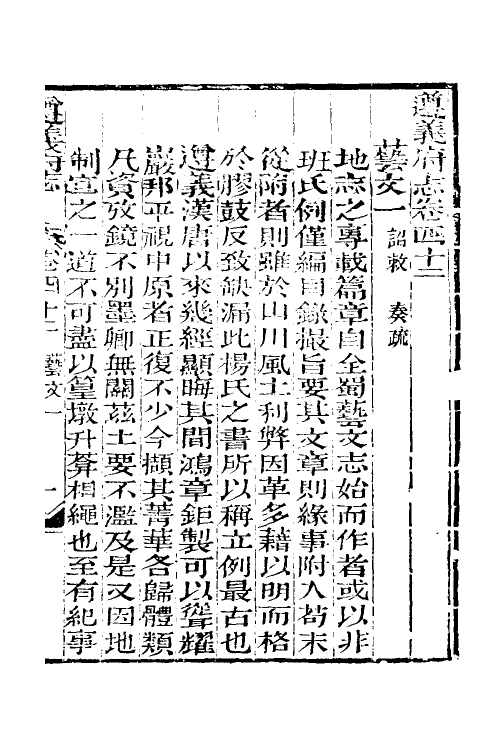 遵義府志卷四十二
藝文一 詔敕 奏疏
地志之專載篇章自全蜀藝文志始而作者或以非
班氏例僅編目錄撮旨要其文章則緣事附人苟末
從附者則雖於山川風土利弊因革多藉以明而格
於膠鼓反致缺漏此楊氏之書所以稱立例最古也
遵義漢唐以來幾經顯晦其間鴻章鉅製可以聳耀
巖邦平視中原者正復不少今擷其菁華各歸體類
凡資攷鏡不別墨卿無關茲土要不濫及是又因地
制宜之一道不可盡以篁墩升菴相繩也至有紀事
遵義府志 卷四十二 藝文一 一